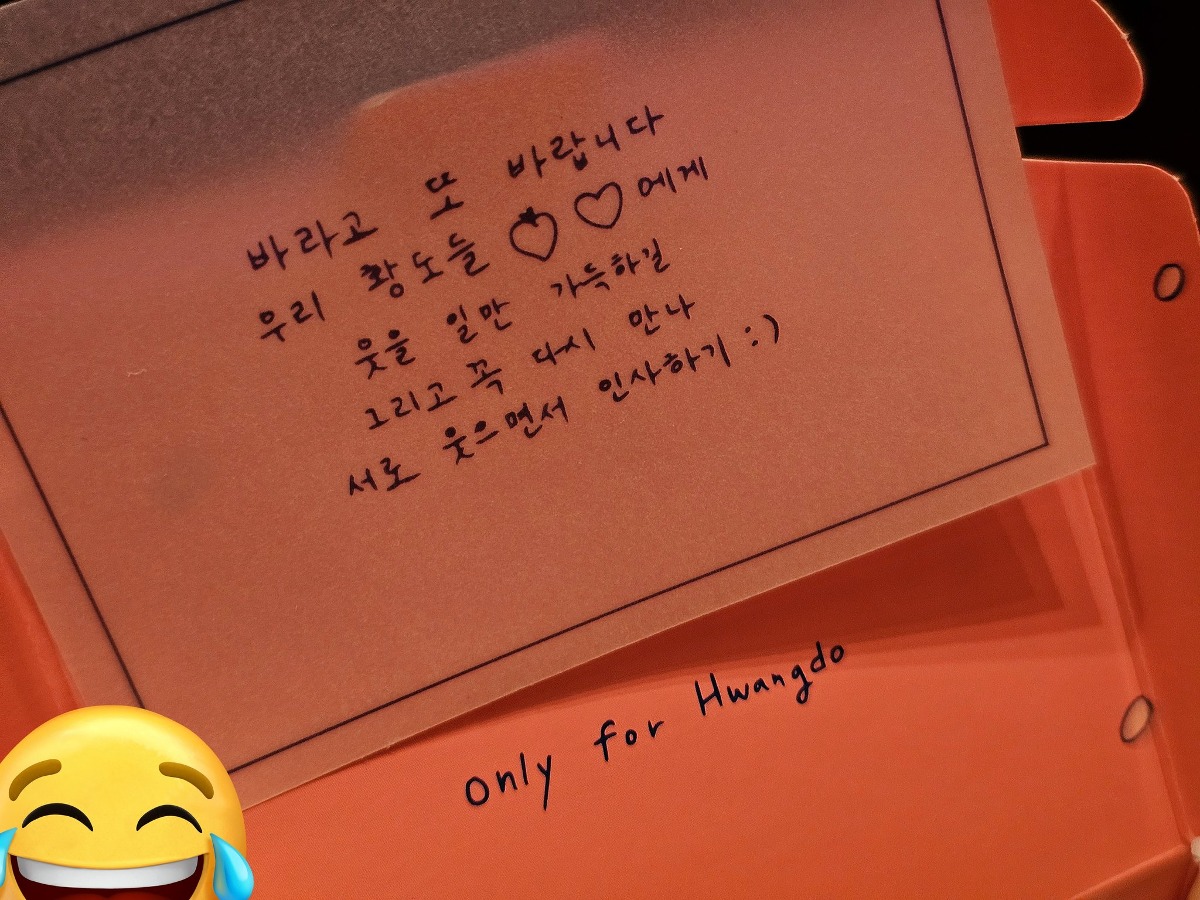 바라고 또 바랍니다
우리 황도들 에게
웃을 일만 가득하길
그리고 꼭 다시 만나
서로 웃으면서 인사하기 :)
only for Hwangdo